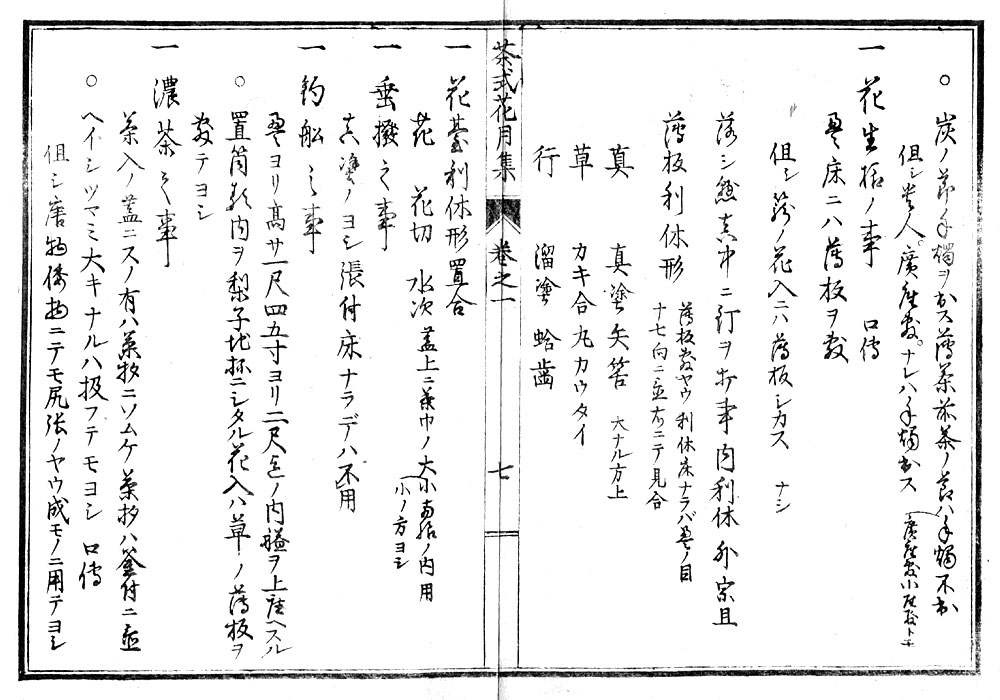 ○ 炭ノ節手燭ヲ出ス薄茶茶ノ節ハ手燭不出
但シ貴人。廣座敷。ナレハ手燭出ス 廣座敷小座敷トモ
一 花生栝ノ事 口傳
畳床ニハ薄板ヲ敷
但シ籠ノ花入ニハ薄板シカス ナシ
落シ懸真中ニ釘ヲ打事内利休外宗旦
薄板利休形 薄板敷ヤウ利休床ナラバ畳ノ目
十七向ニ置右ニテ見合
真 真塗矢筈 大ナル方上
草 カキ合丸カウタイ
行 溜塗蛤歯
茶式花月集 巻之一 七
一 花臺利休形置合
花 花切 水次 蓋上ニ茶巾ノ大小 内用
小ノ方ヨシ
一 垂撥之事
真塗ノヨシ張付床ナラデハ不用
一 釣舩之事
畳ヨリ高サ一尺四五寸ヨリ二尺迄ノ内艫ヲ上座ヘスル
○ 置筒類内ヲ梨子地抔ニシタル花入ハ草ノ薄板ヲ
敷テヨシ
一 濃茶之事
茶入ノ蓋ニスノ有ハ茶杓ニソムケ茶杓ハ釜付ニ置
○ ヘイシツマミ大キナルハ扱フテモヨシ 口傳
但シ唐物倭物ニテモ尻張ノヤウ成モノニ用テヨシ